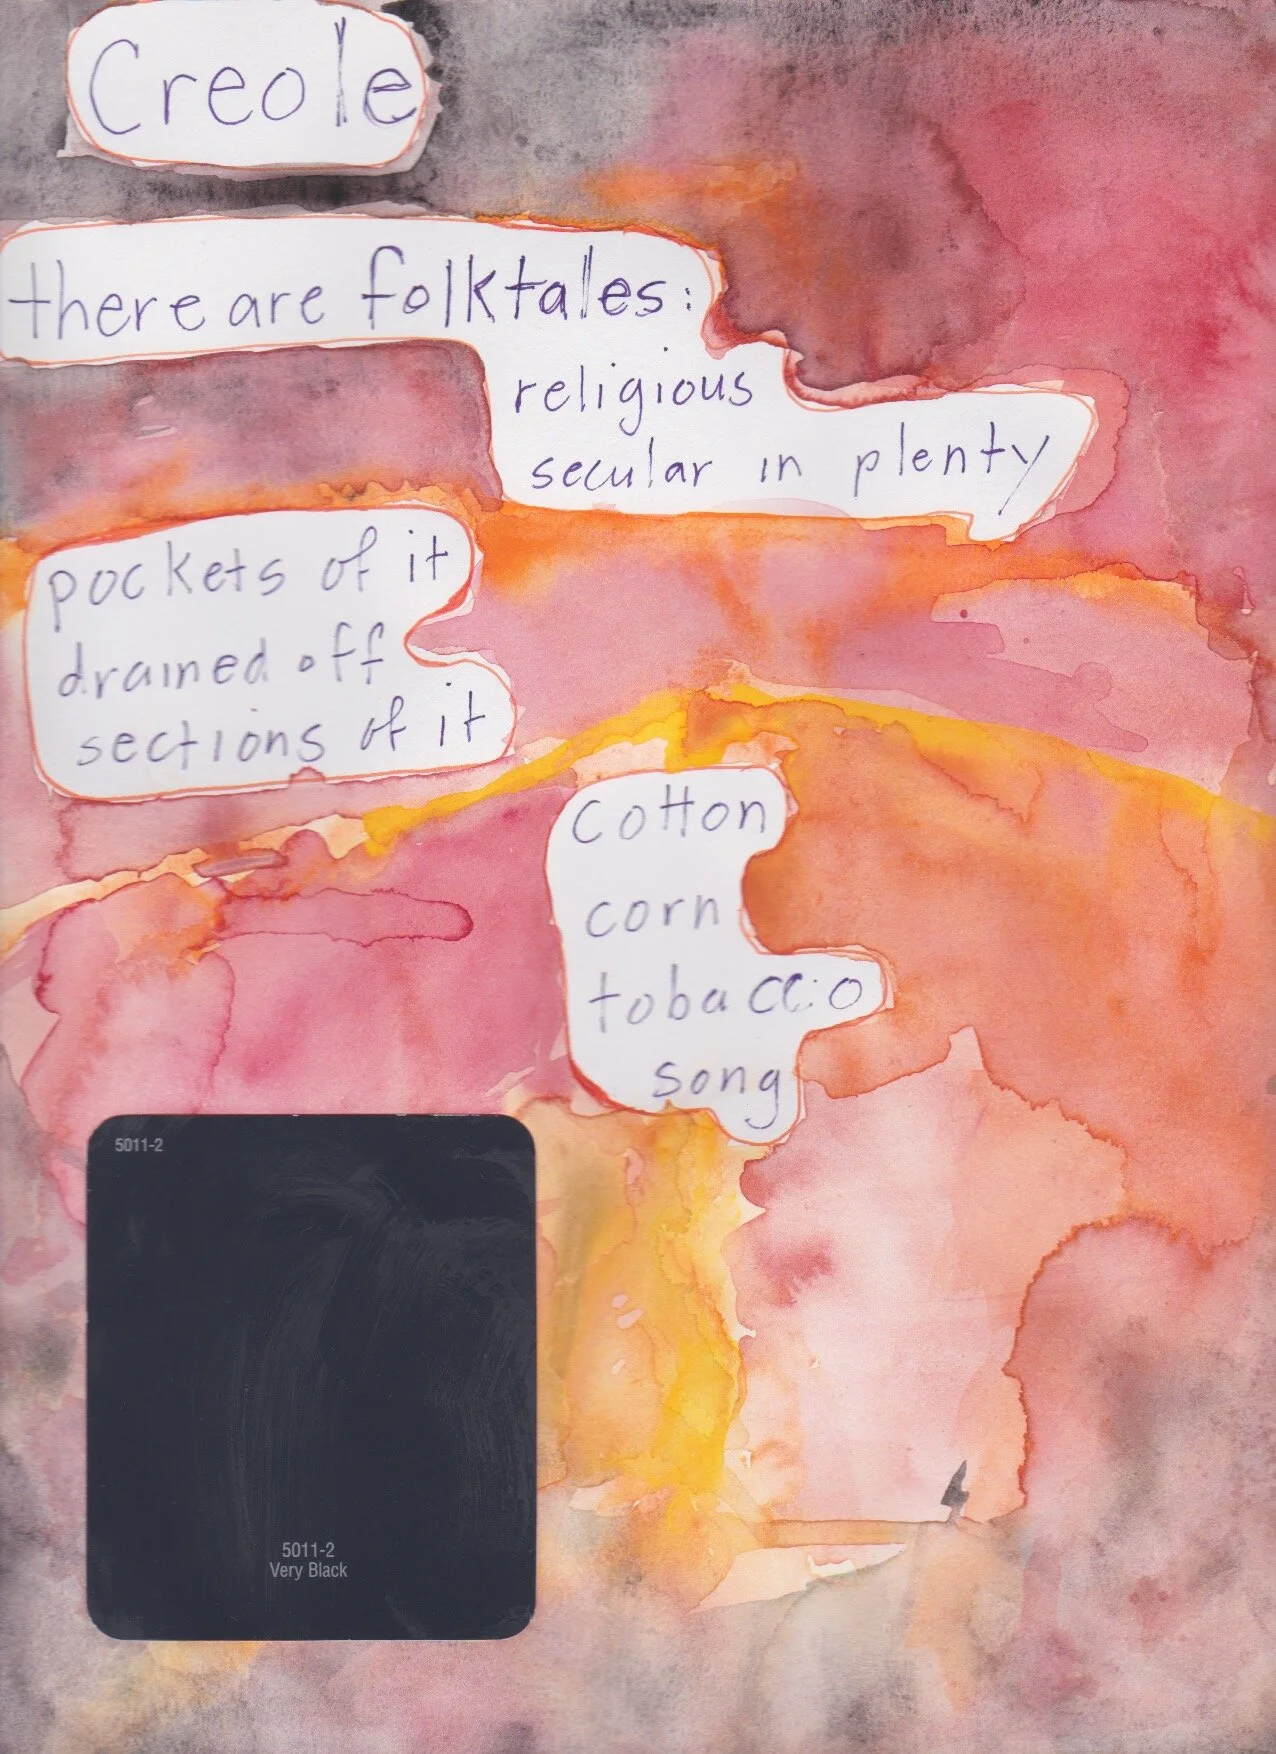 Creole
there are folktales:
religious
secular in plenty
pockets of it
drained off
sections of it
cotton
corn
tobacco
song
5011-2
5011-2
Very Black